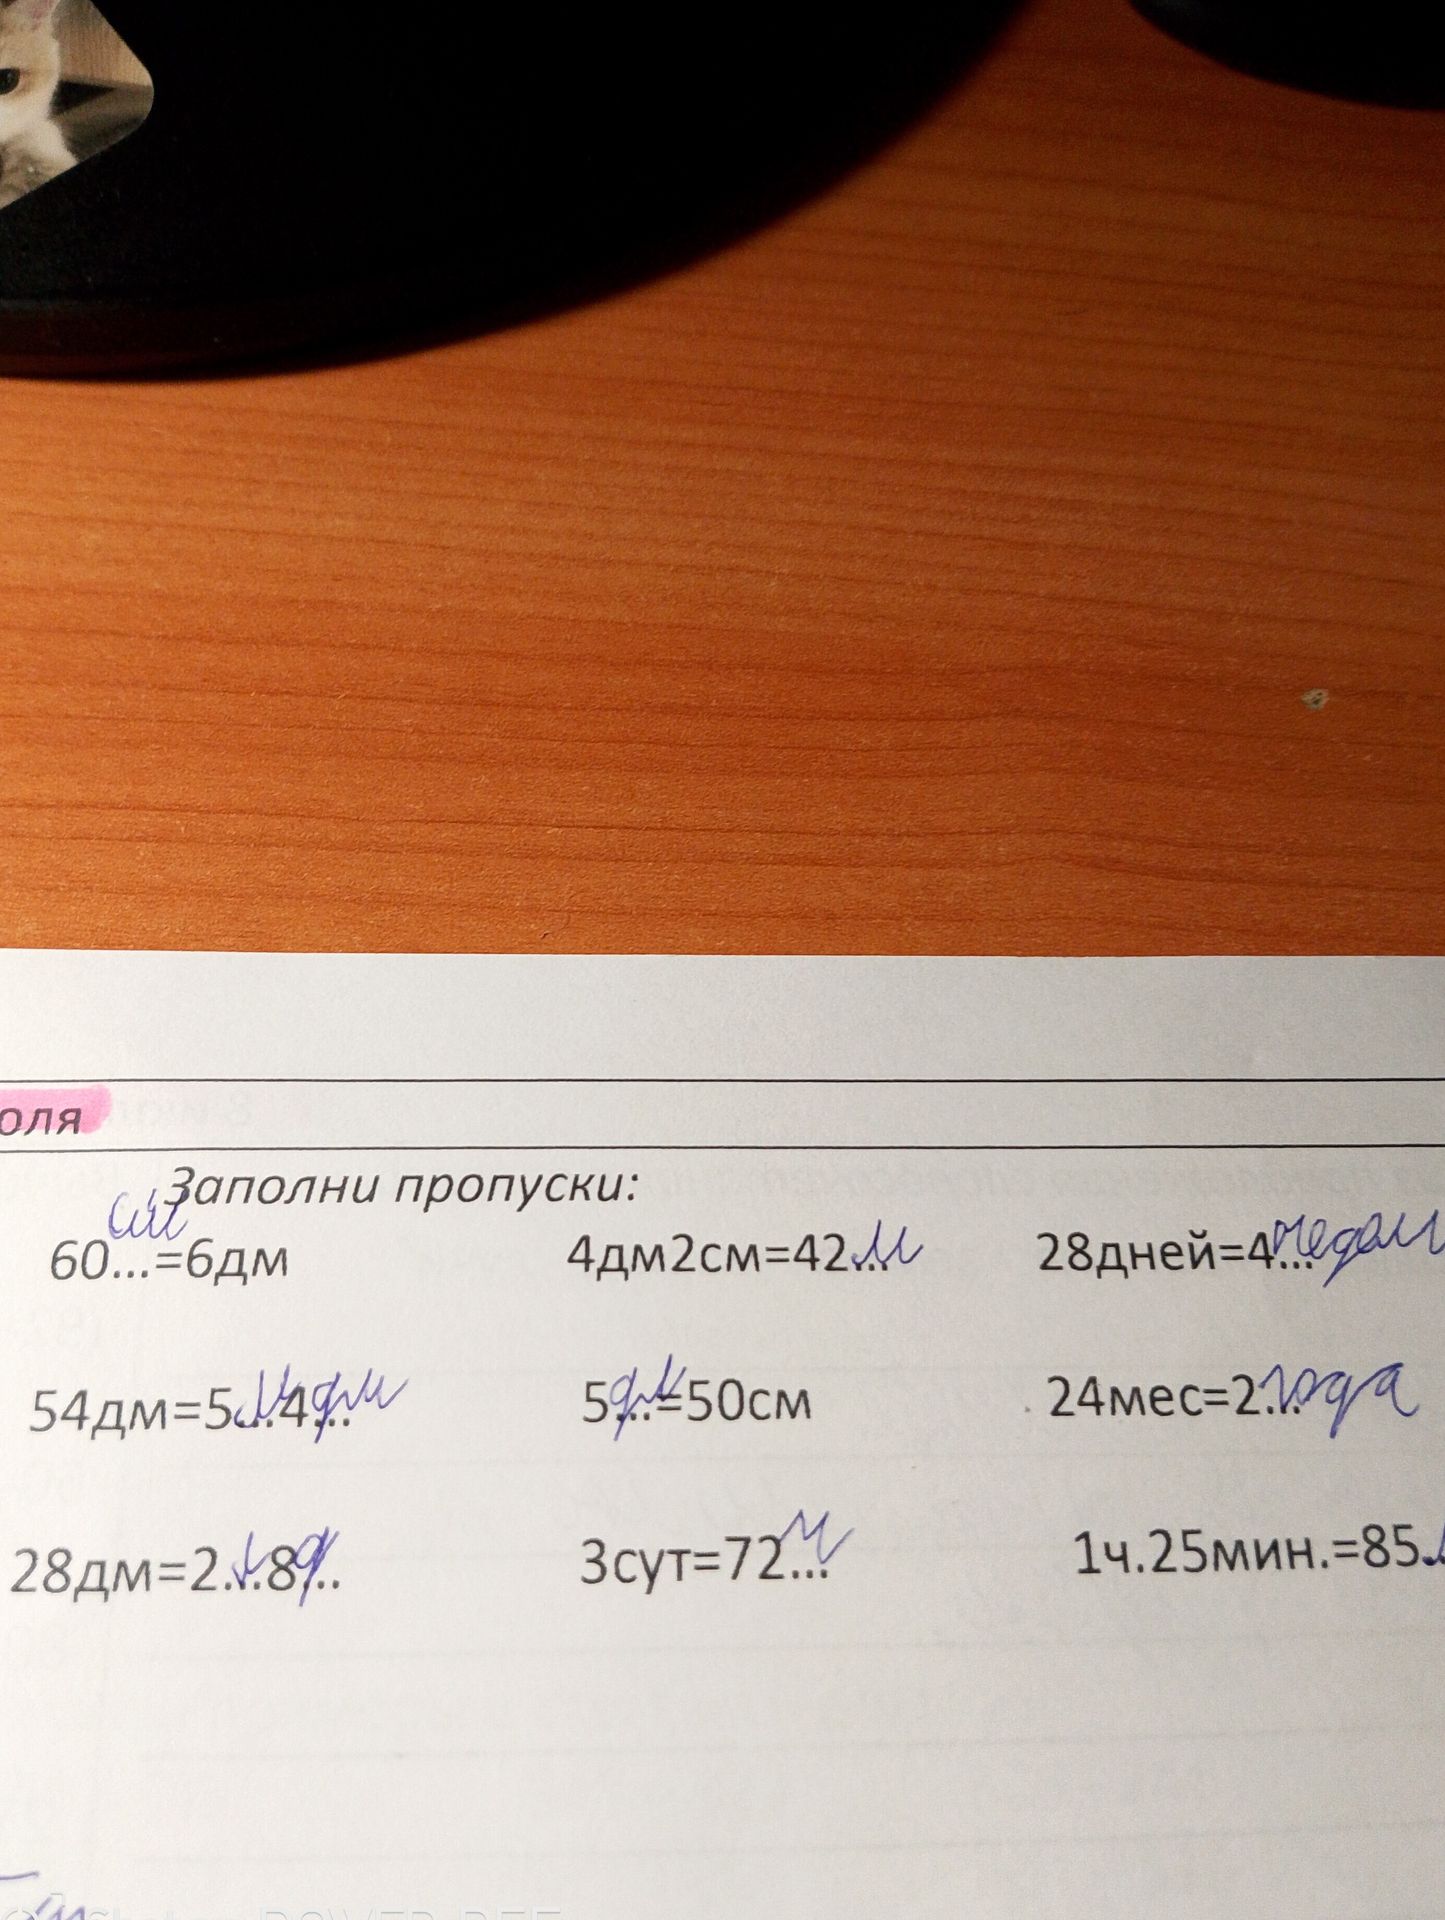 оля
Заполни пропуски:
см
60...=6дм 4дм2см=42...м 28дней=4...недели
54дм=5...м4...дм 5...дм=50см 24мес=2...года
28дм=2...м8...д 3сут=72... 1ч.25мин.=85